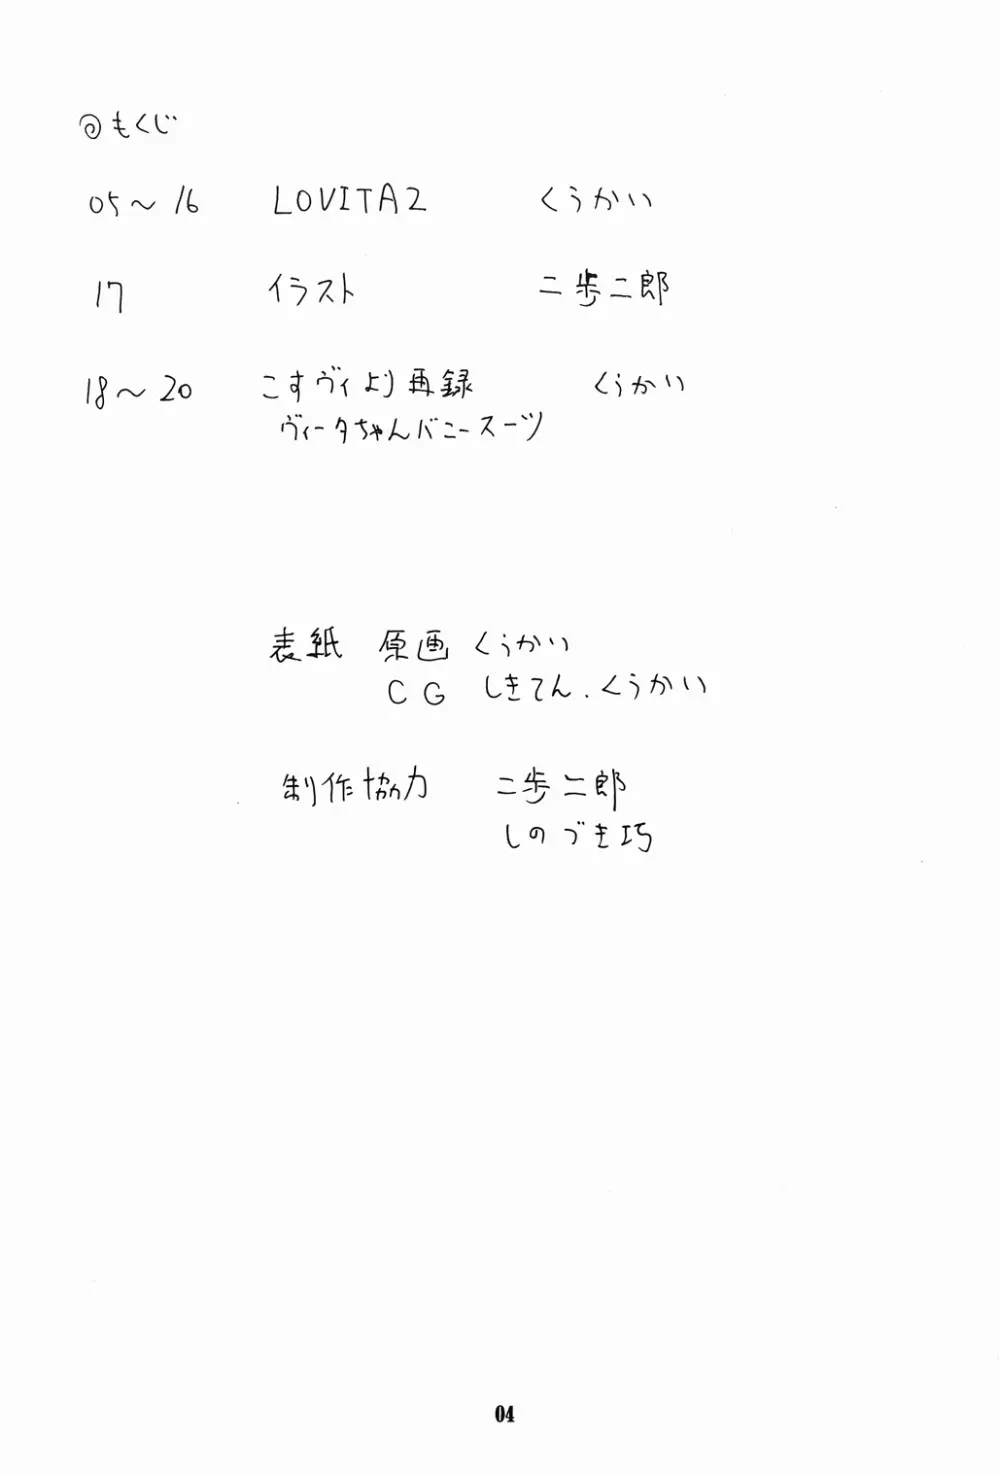 ◎もくじ
05～16 LOVITA2 くうかい
17 イラスト 二歩二郎
18～20 こすヴィより再録 くうかい
ヴィータちゃんバニースーツ
表紙 原画 くうかい
CG しきてん.くうかい
制作協力 二歩二郎
しのづき巧
04